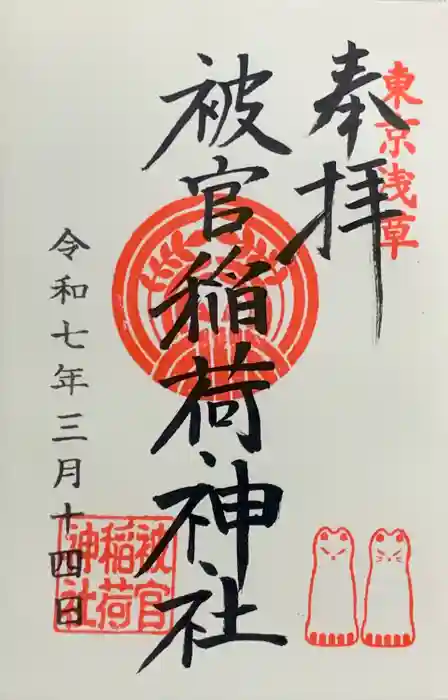 東京浅草
奉拝
被官稲荷神社
令和七年三月十四日
被官
稲荷
神社